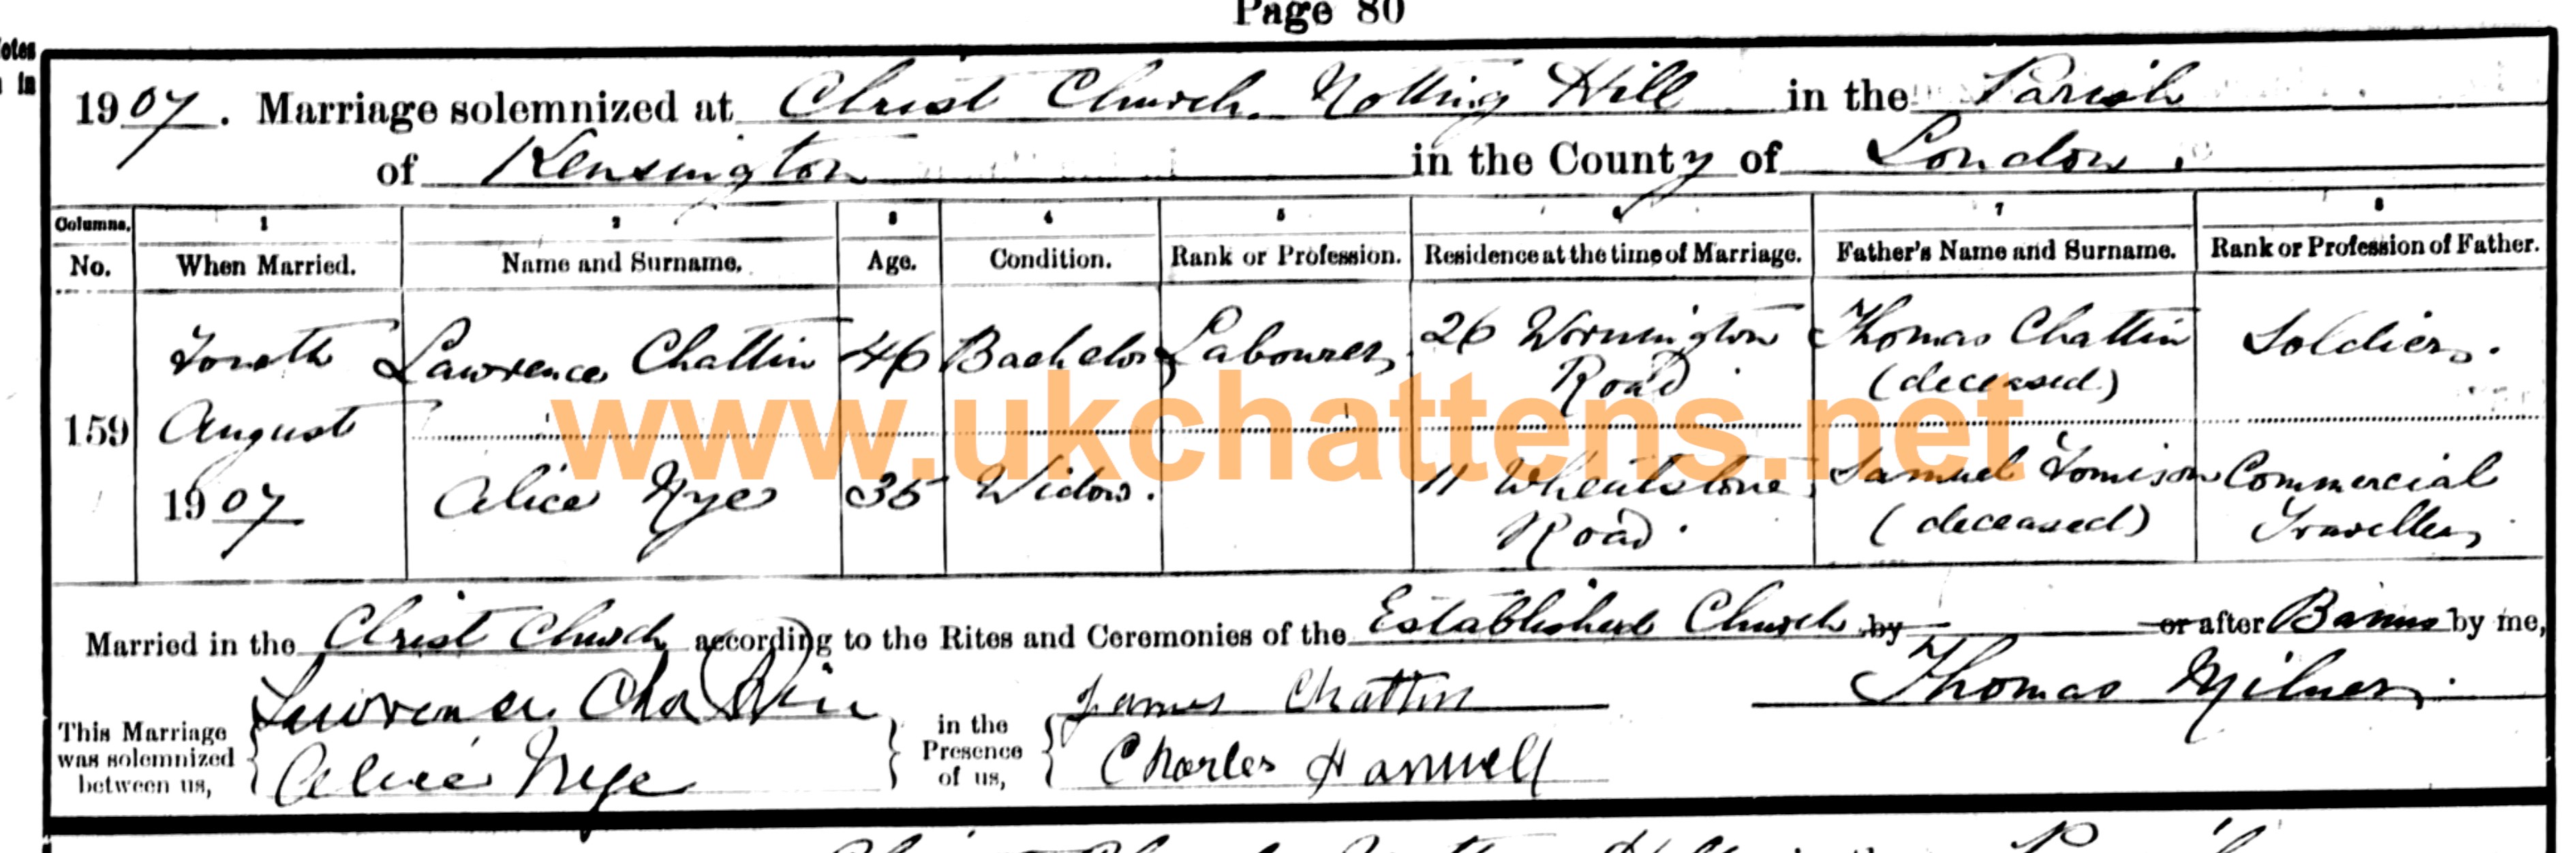 Page 80
1907. Marriage solemnized at Christ Church. Notting Hill in the Parish
of Kensington in the County of London.
Columns. 1 2 3 4 5 7 8
No. When Married. Name and Surname. Age. Condition. Rank or Profession. Residence at the time of Marriage. Father's Name and Surname. Rank or Profession of Father.
159 Fourth August 1907
Lawrence Chattin 46 Bachelor Labourer 26 Wornington Road Thomas Chattin (deceased) Soldier.
www.ukchattens.net
Alice Nye 35 Widow. 11 Wheatstone Road. Samuel Tomison (deceased) Commercial Traveller
Married in the Christ Church according to the Rites and Ceremonies of the Established Church by or after Banns by me,
This Marriage was solemnized between us, Lawrence Chattin Alice Nye in the Presence of us, James Chattin Charles Hanwell Thomas Milner.